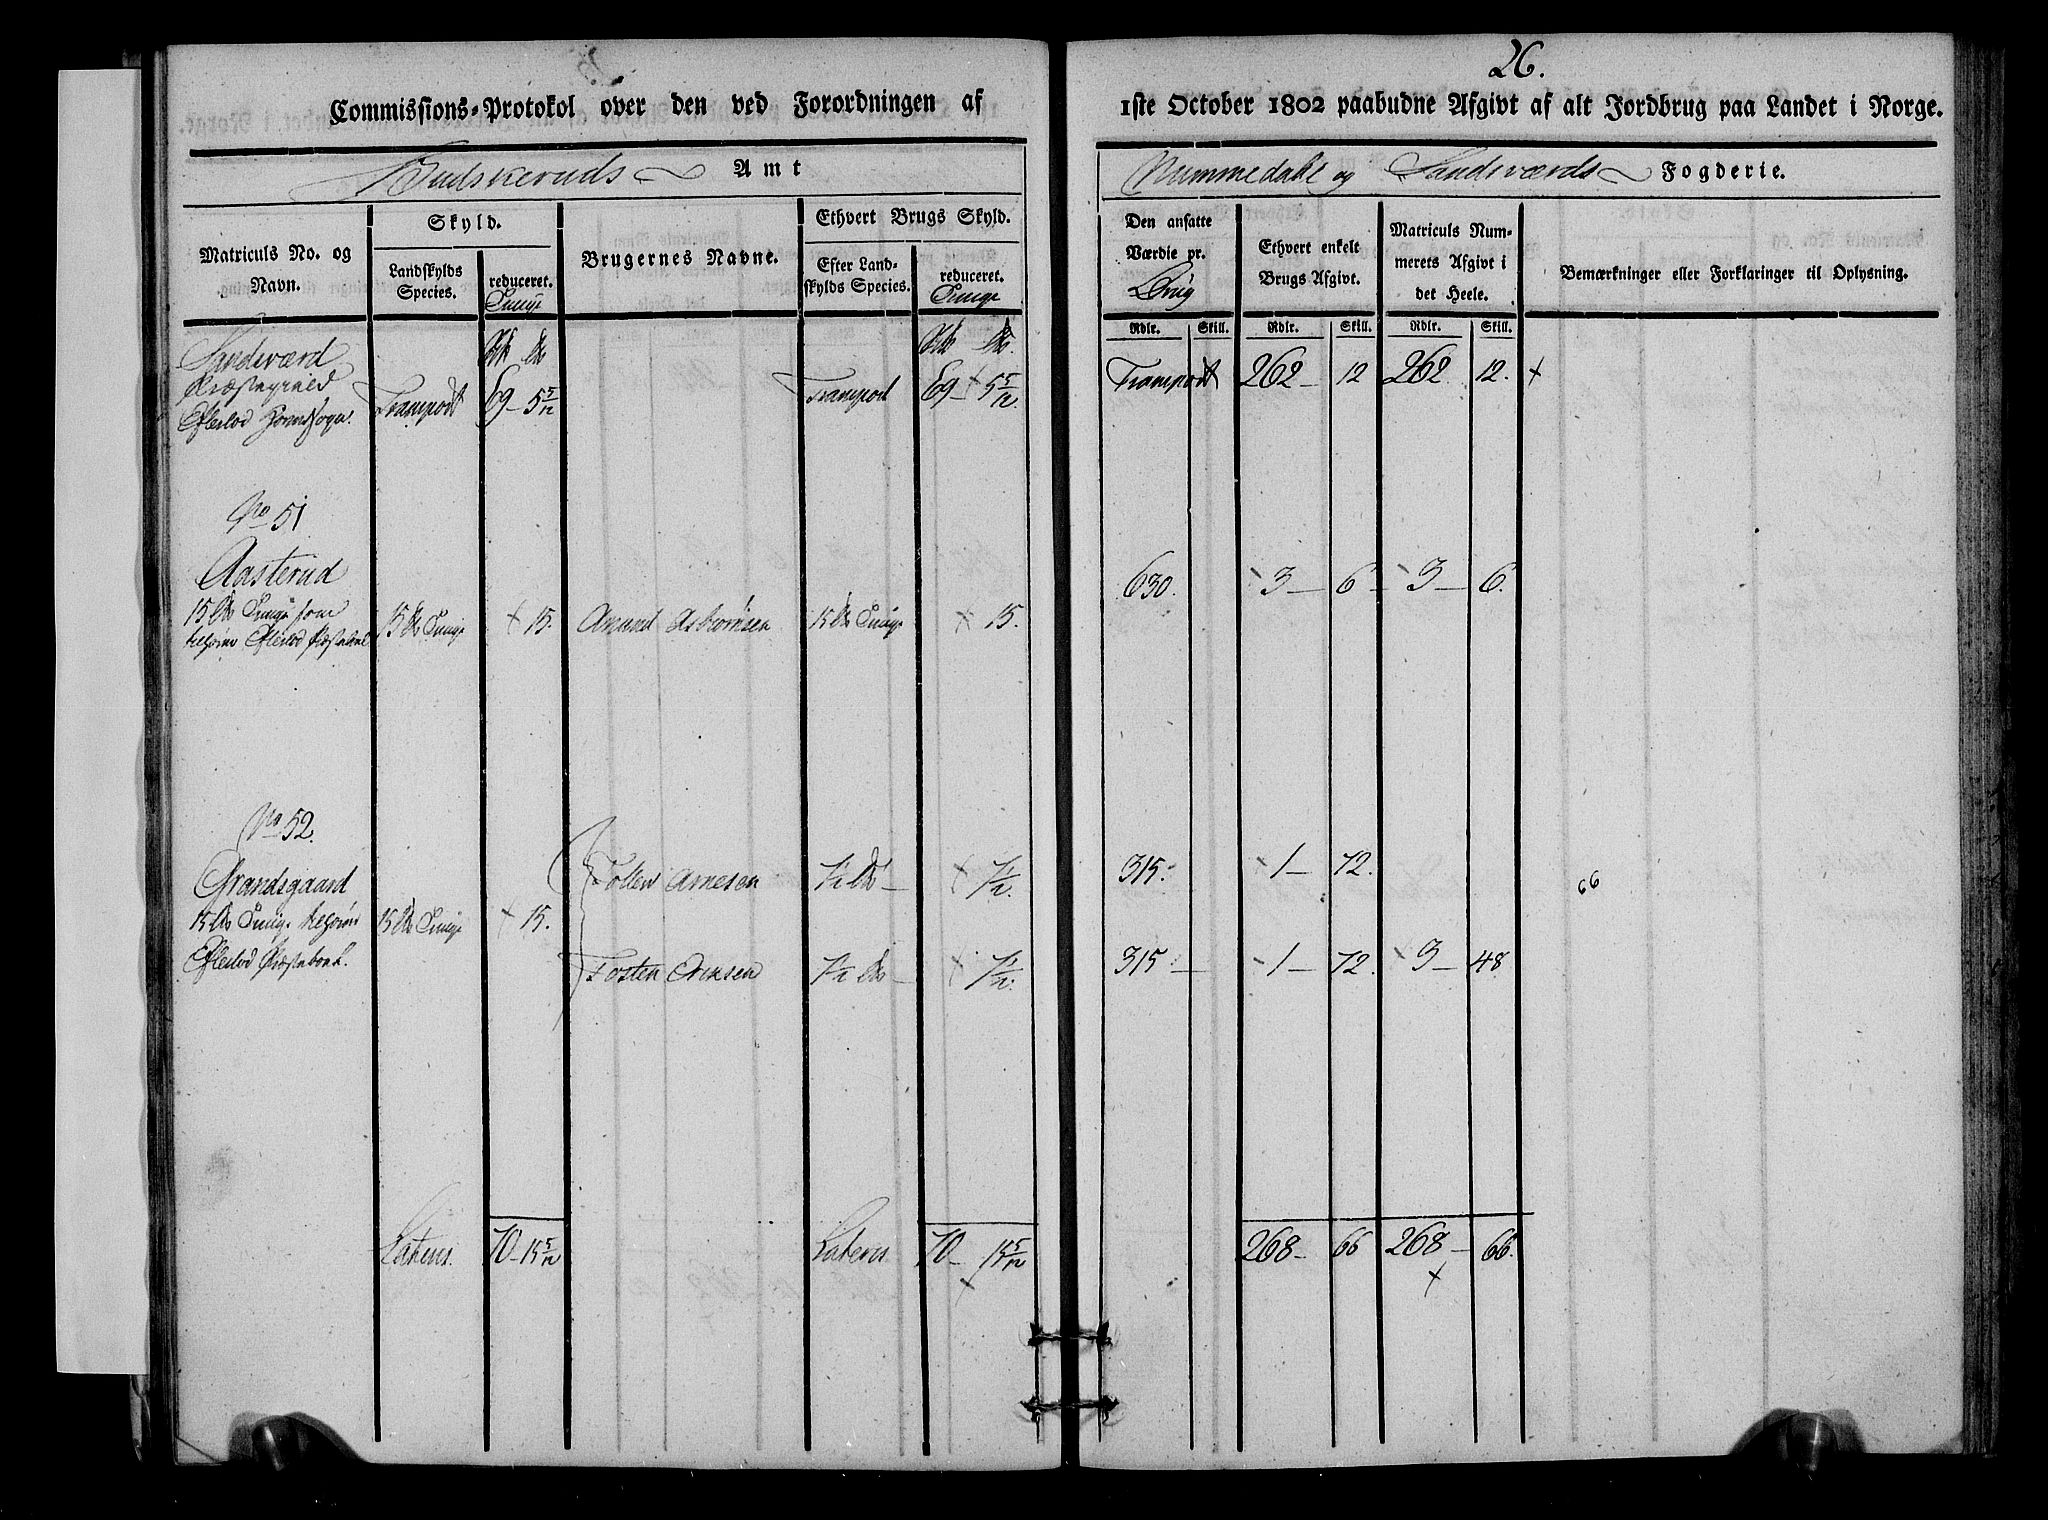 26.
Commissions-Protokol over den ved Forordningen af
1ste October 1802 paabudne Afgivt af alt Jordbrug paa Landet i Norge.
Budskeruds Amt
Nummedals og Sandsværds Fogderie.
Matriculs No. og Navn.
Skyld.
Landskylds Species.
reduceret.
Tunge
Brugernes Navne.
Ethvert Brugs Skyld.
Efter Landskylds Species.
reduceret.
Tunge
Den ansatte Værdie pr.
Brug
Ethvert enkelt Brugs Afgivt.
Matriculs Nummerets Afgivt i det Heele.
Bemærkninger eller Forklaringer til Oplysning.
Rdlr. Skill. Rdlr. Skill. Rdlr. Skill.
Sandsværd
Præstegield
Efteslod Hoved Sogn.
Transport 69 - 5 5/12
Transport 69 - 5 5/12.
Transport 262 - 12 262. 12.
No 51
Aasterud
15 Tunge som
15 Tunge 15. Amund Asbiørnsen 15 Tunge 15.
630. 3 - 6 3 - 6.
No 52.
Grandsgaard
15 Tunge
Efteslod
15 Tunge 15.
Tollew Arnesen 7½ 7½.
315. 1 - 72.
66
Tosten Ericksen 7½ 7½.
315 - 1 - 72. 3 - 48
Lateris. 70 - 15 5/12
Lateris 70 - 15 5/12
268 - 66 268 - 66.